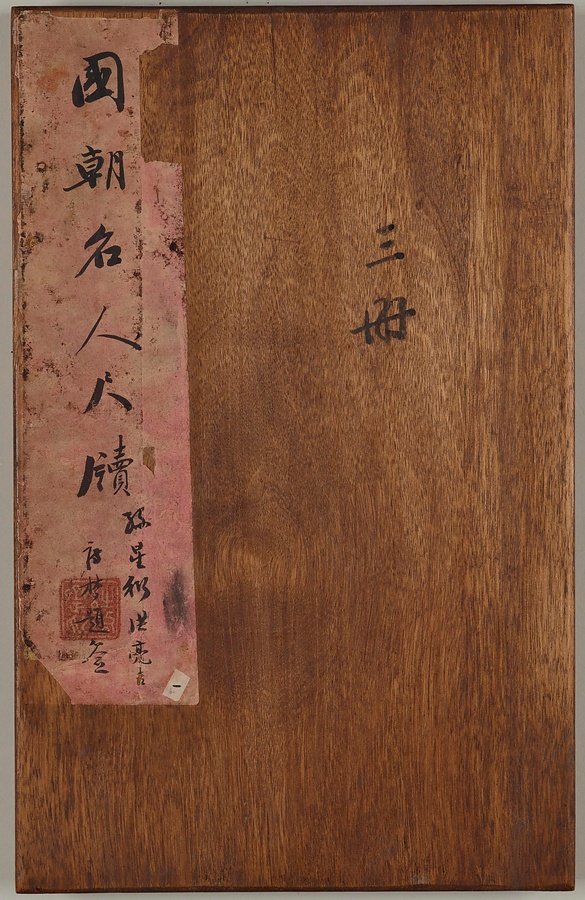 三冊
國朝名人尺牘
孫星衍洪亮吉
題簽
一